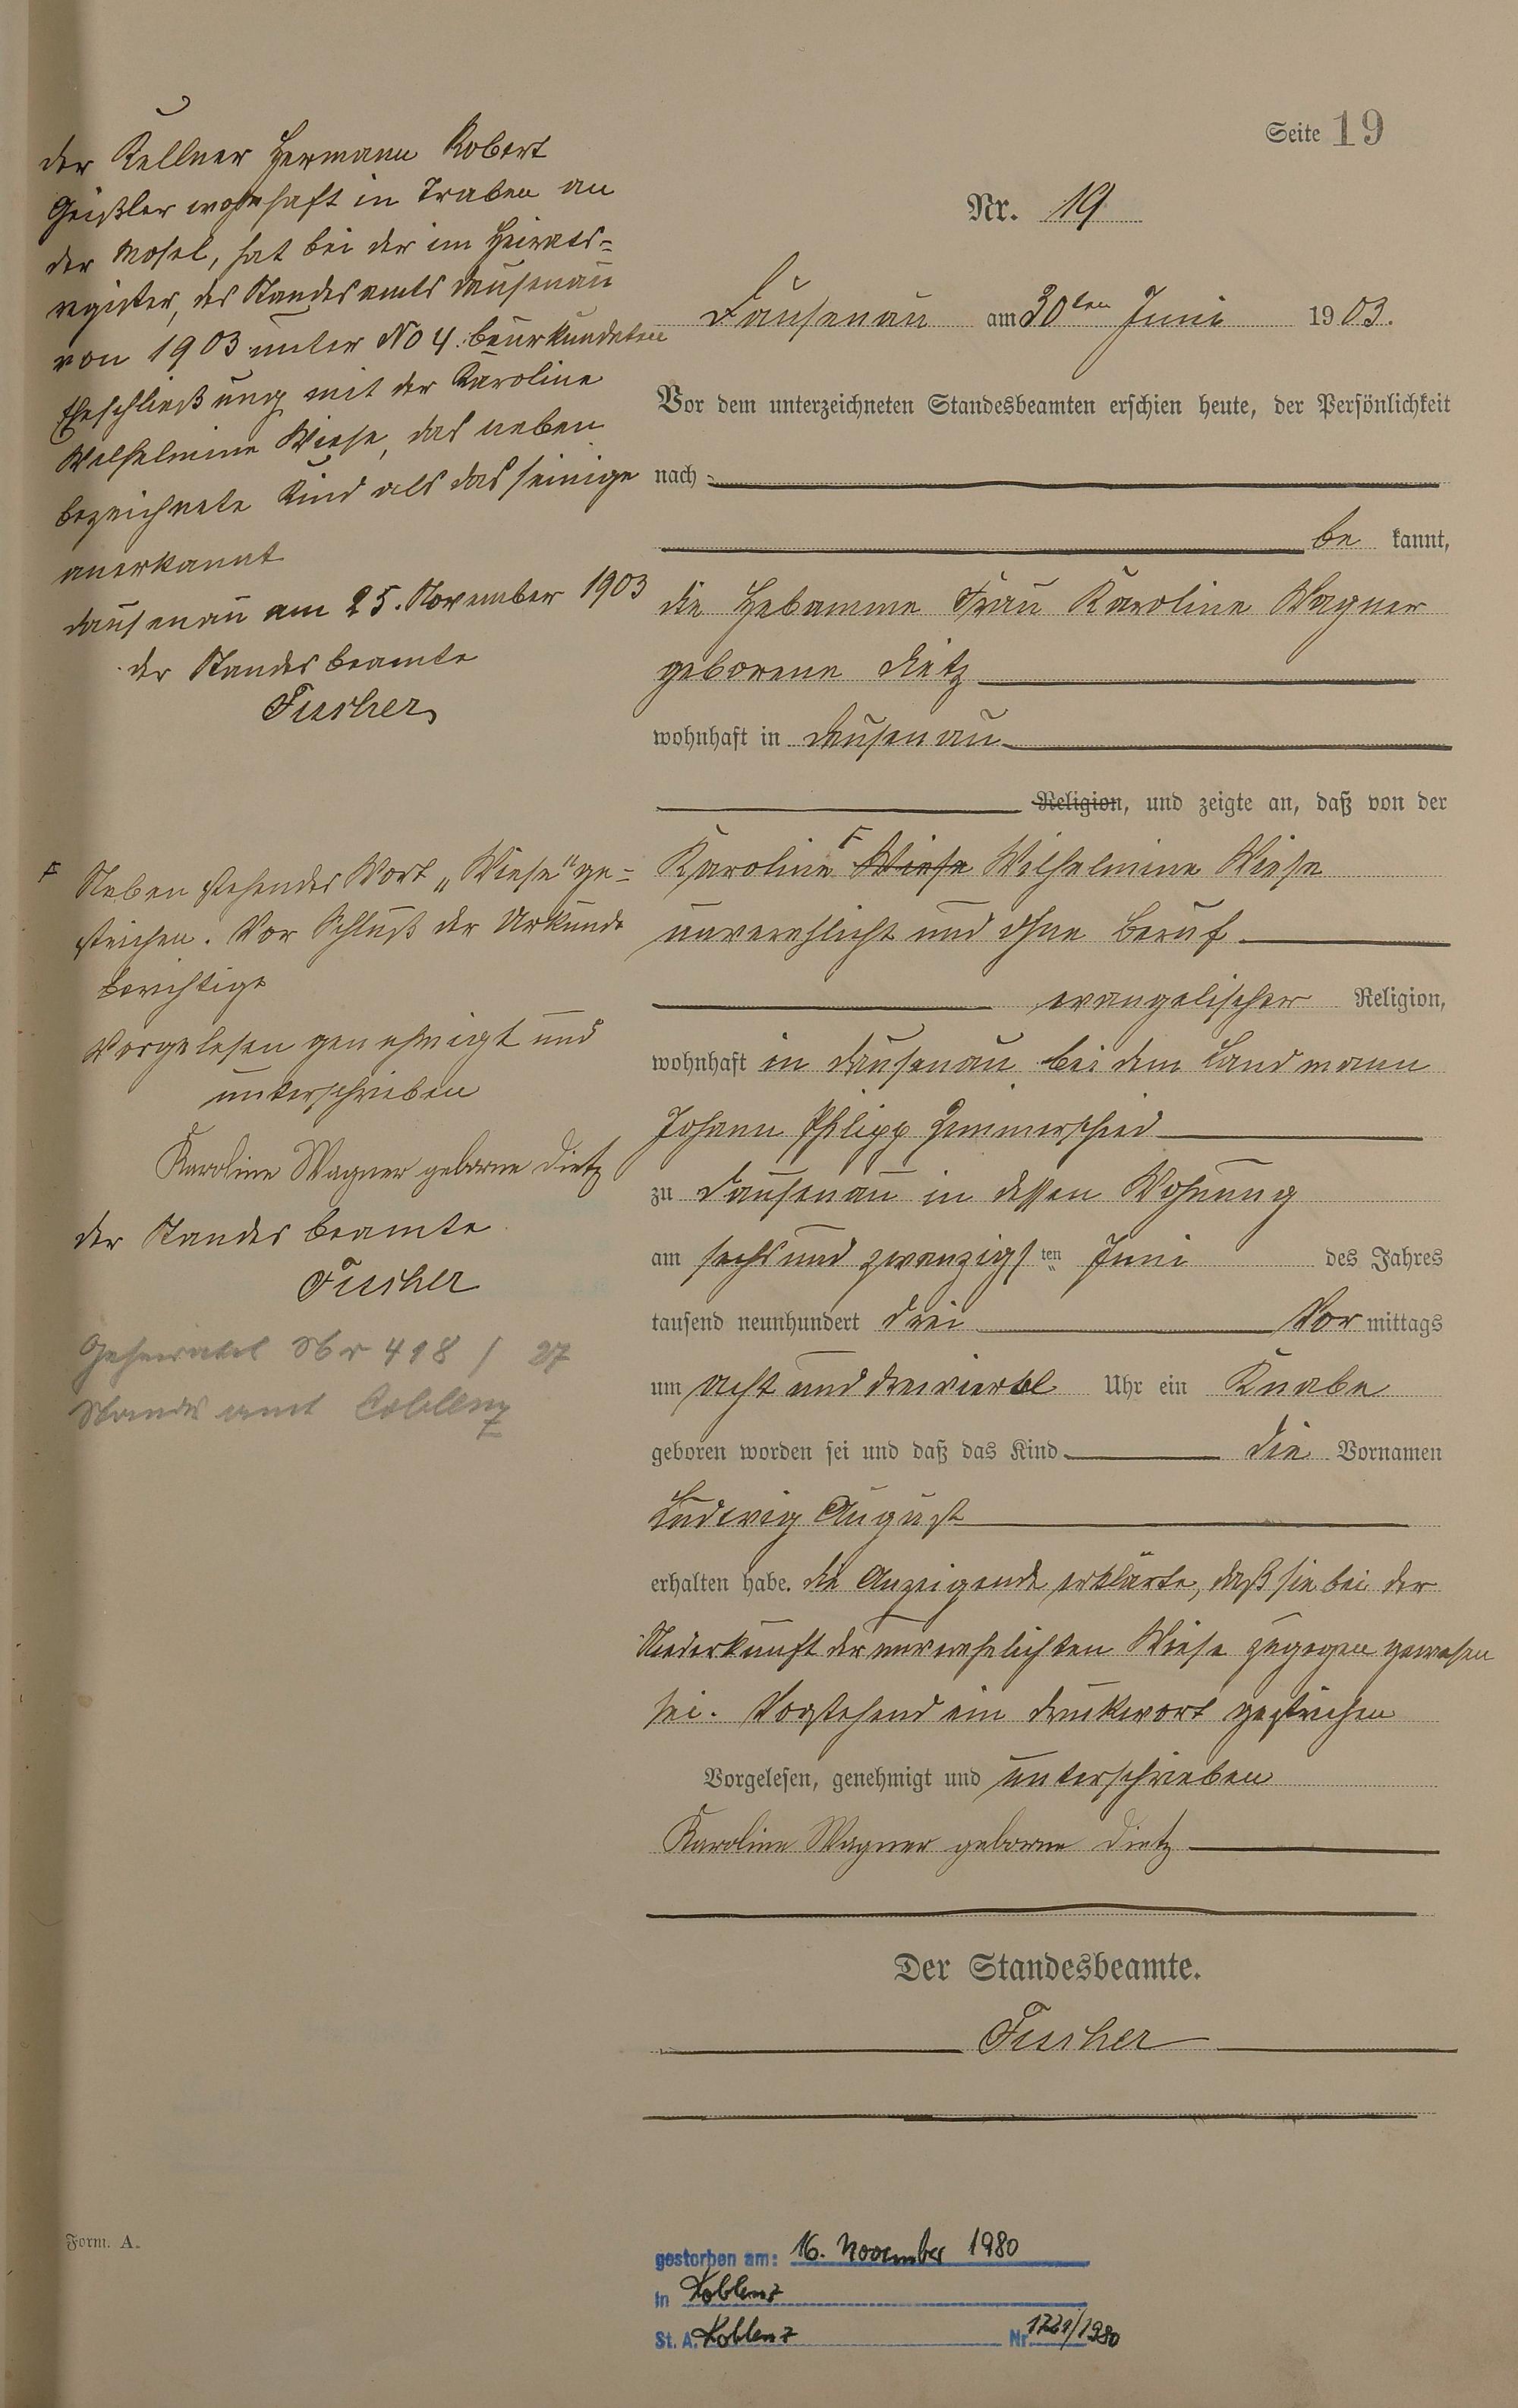 Seite 19
Nr. 19
Dausenau am 30ten Juni 1903.
Vor dem unterzeichneten Standesbeamten erschien heute, der Persönlichkeit
nach
be kannt,
die Hebamme Frau Karoline Wagner
geborene Dietz
wohnhaft in Dausenau
Religion, und zeigte an, daß von der
Karoline F Wiese Wilhelmine Wiese
unverehlicht und ohne Beruf
evangelischer Religion,
wohnhaft in Dausenau bei dem Landmann
Johann Philipp Zimmerschied
zu Dausenau in dessen Wohnung
am sechs und zwanzigsten Juni des Jahres
tausend neunhundert drei Vor mittags
um acht und dreiviertel Uhr ein Knabe
geboren worden sei und daß das Kind die Vornamen
Ludwig August
erhalten habe. Die Anzeigende erklärte, daß sie bei der
Niederkunft der unverehelichten Wiese zugegen gewesen
sei. Vorstehend ein Druckwort gestrichen
Vorgelesen, genehmigt und unterschrieben
Karoline Wagner geborne Dietz
Der Standesbeamte.
Fischer
der Kellner Hermann Robert
Geißler wohnhaft in Traben an
der Mosel, hat bei der im Heirats-
register, des Standesamts Dausenau
von 1903 unter No 4. beurkundeten
Eheschließung mit der Karoline
Wilhelmine Wiese, das neben
bezeichnete Kind als das seinige
anerkannt
Dausenau am 25. November 1903
der Standesbeamte
Fischer
F Neben stehendes Wort „Wiese" ge-
strichen. Vor Schluß der Urkunde
berichtigt
Vorgelesen genehmigt und
unterschrieben
Karoline Wagner geborne Dietz
der Standesbeamte
Fischer
Geheiratet Nr 418 / 27
Standesamt Coblenz
Form. A.
gestorben am: 16. November 1980
in Koblenz
St. A. Koblenz Nr 1221/1980